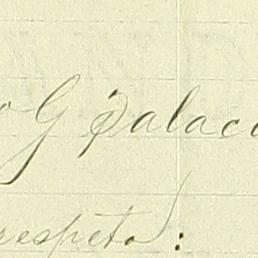 G Palac
respeto: